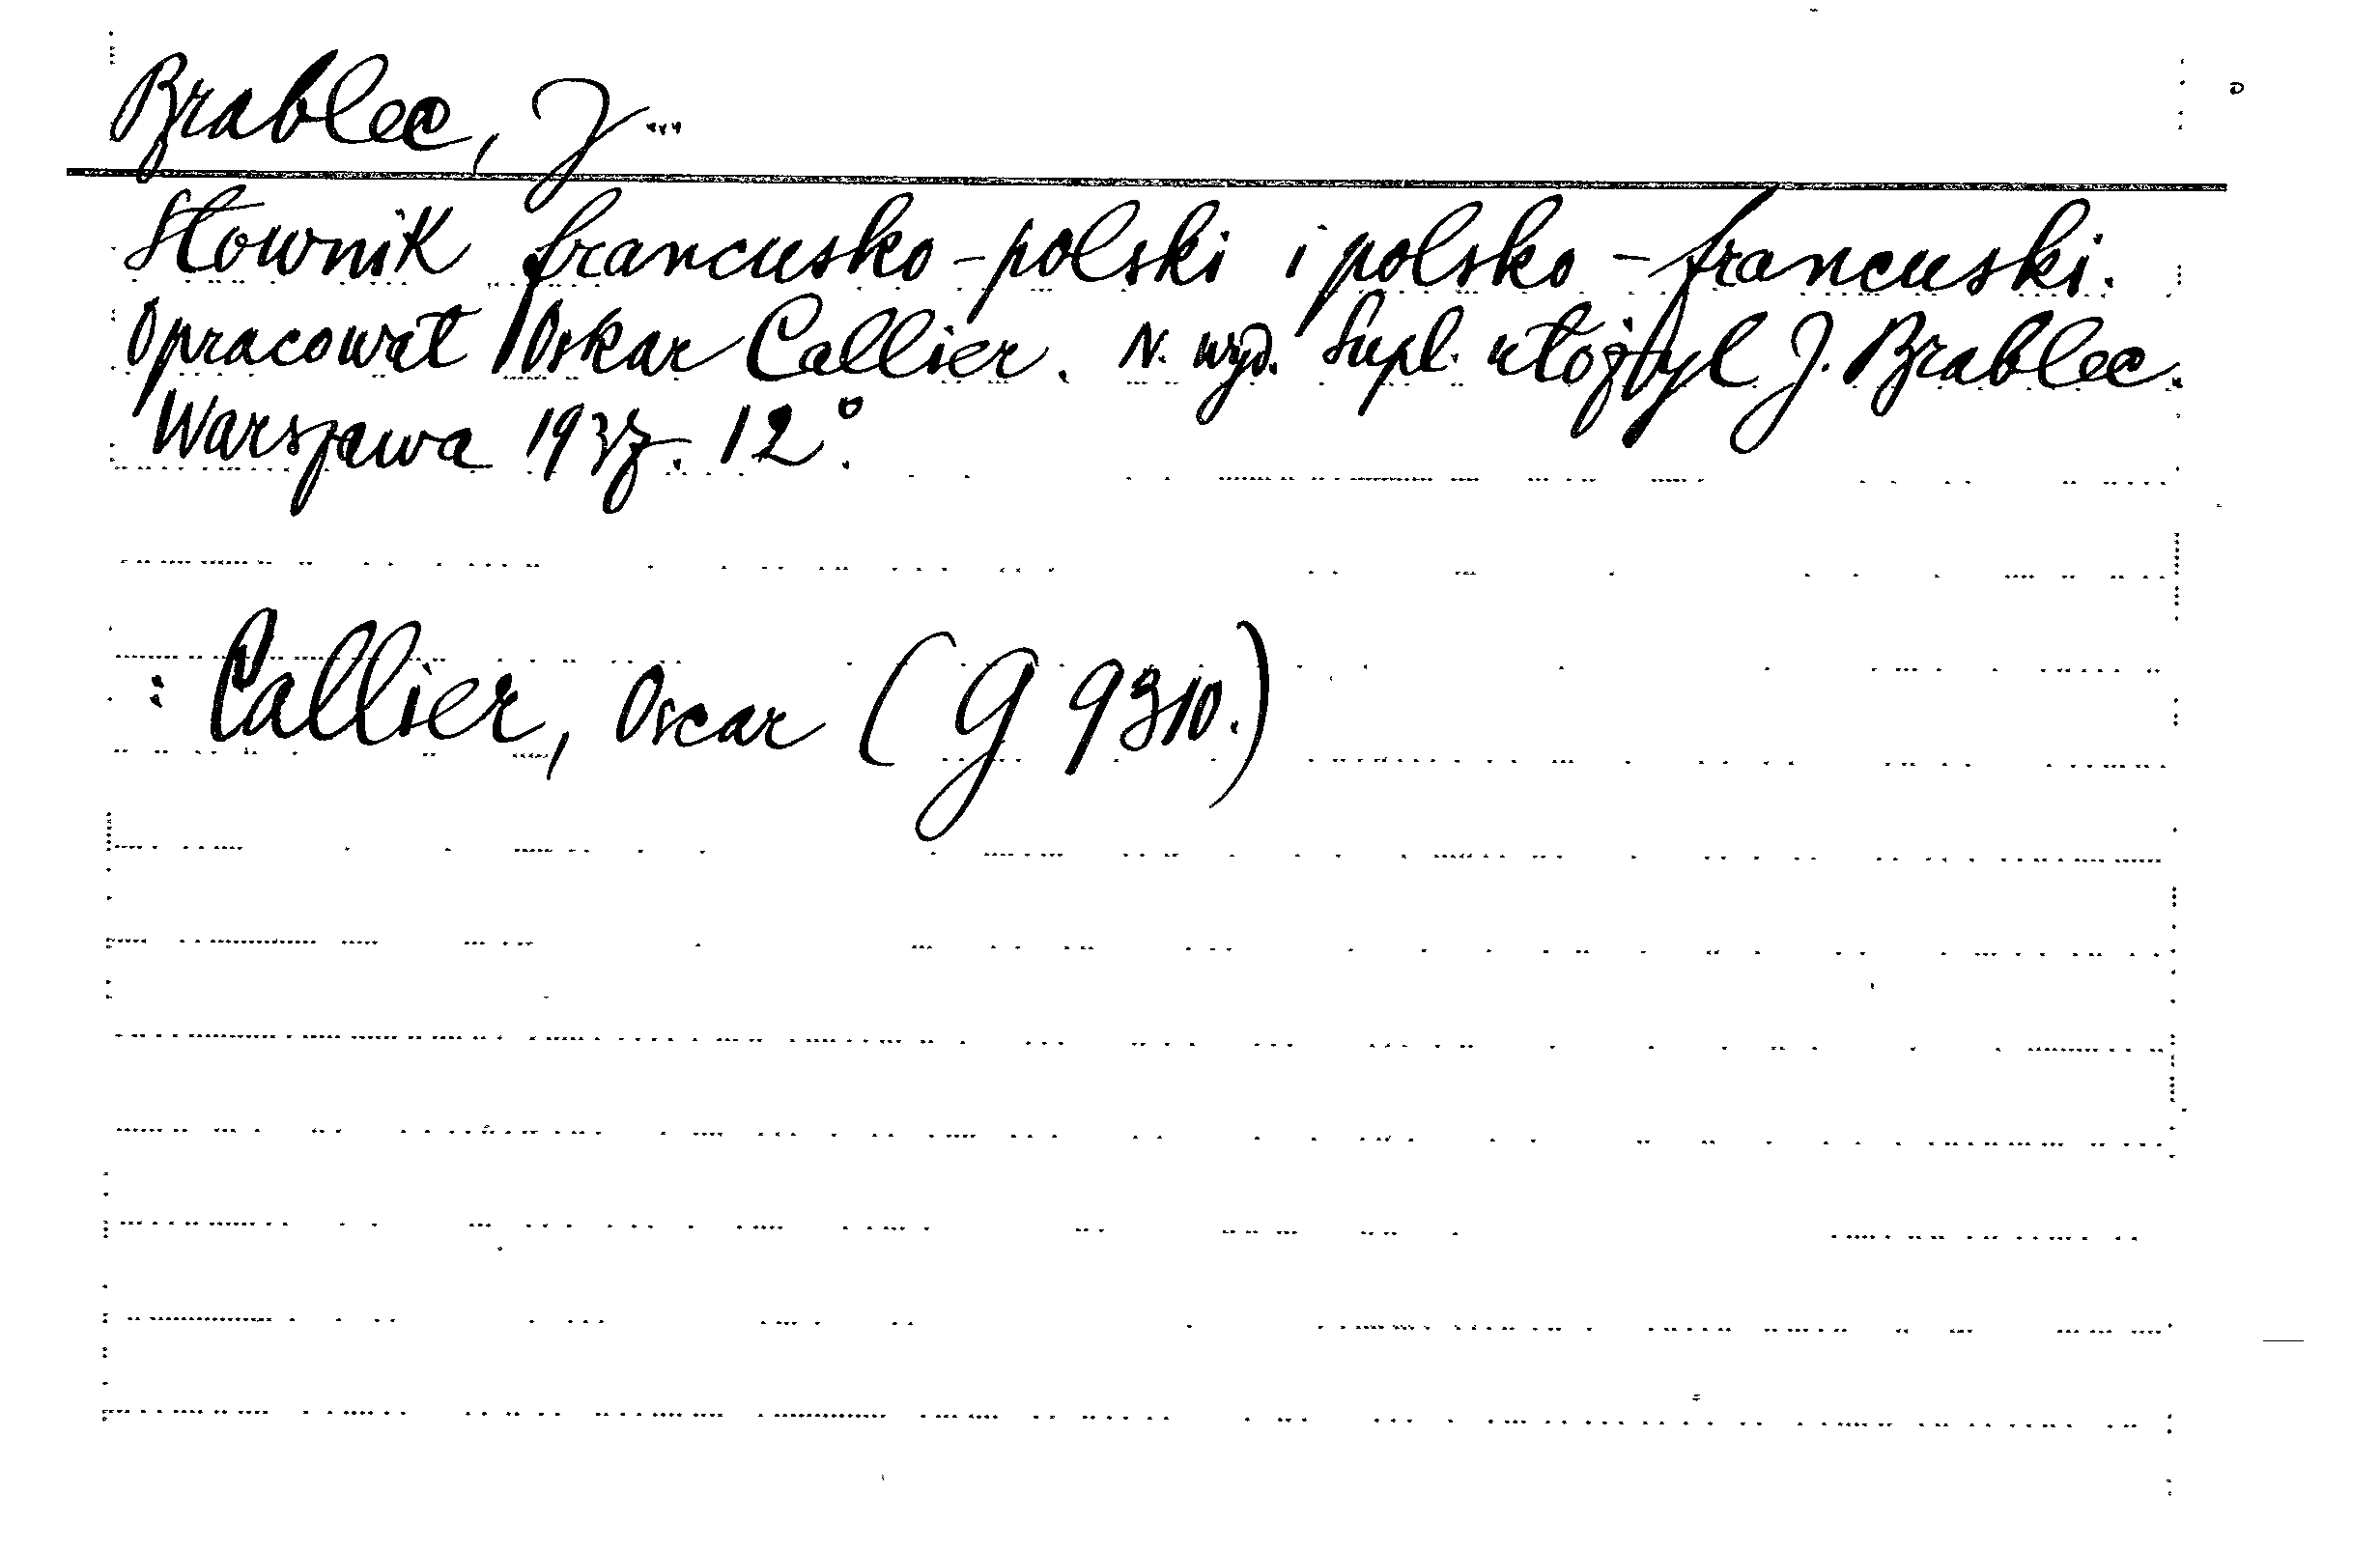 Brablec, J...
Słownik francusko-polski i polsko-francuski.
Opracował Oskar Callier. N. wyd. Supl. ułożył J. Brablec.
Warszawa 1937. 12°.
: Callier, Oscar (G 9310.)